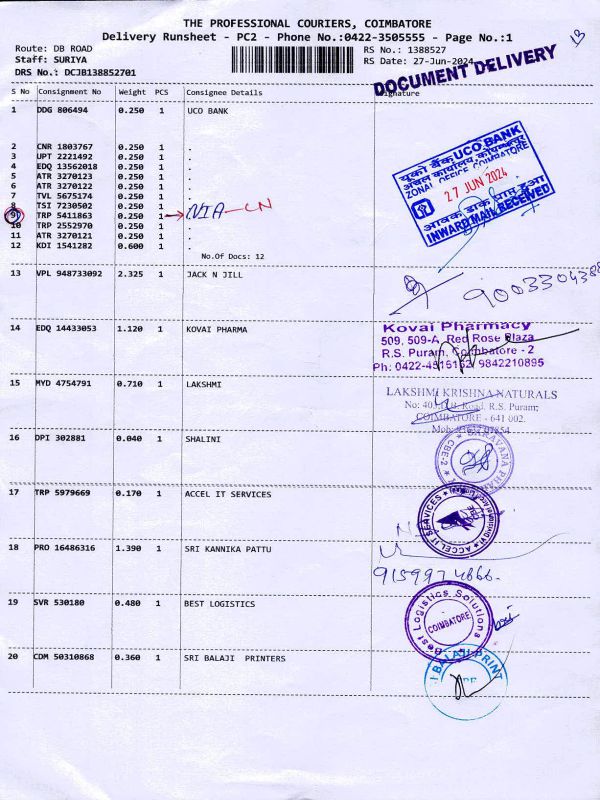 13
THE PROFESSIONAL COURIERS, COIMBATORE
Delivery Runsheet - PC2 - Phone No.:0422-3505555 - Page No.:1
Route: DB ROAD RS No.: 1388527
Staff: SURIYA RS Date: 27-Jun-2024
DRS No.: DCJB138852701
DOCUMENT DELIVERY
S No Consignment No Weight PCS Consignee Details Signature
1 DDG 806494 0.250 1 UCO BANK
2 CNR 1803767 0.250 1 .
3 UPT 2221492 0.250 1 .
4 EDQ 13562018 0.250 1 .
5 ATR 3270123 0.250 1 .
6 ATR 3270122 0.250 1 .
7 TVL 5675174 0.250 1 .
8 TSI 7230502 0.250 1 .
9 TRP 5411863 0.250 1 . NIA - LN
10 TRP 2552970 0.250 1 .
11 ATR 3270121 0.250 1 .
12 KDI 1541282 0.600 1 .
No.Of Docs: 12
यूको बैंक UCO BANK
अंचल कार्यालय कोयम्बत्तूर
ZONAL OFFICE COIMBATORE
27 JUN 2024
आवक डाक प्राप्त हुआ
INWARD MAIL RECEIVED
13 VPL 948733092 2.325 1 JACK N JILL
14 EDQ 14433053 1.120 1 KOVAI PHARMA
Kovai Pharmacy
509, 509-A, Red Rose Plaza
R.S. Puram, Coimbatore - 2
Ph: 0422-4515152 9842210895
15 MYD 4754791 0.710 1 LAKSHMI
LAKSHMI KRISHNA NATURALS
R.S. Puram;
COIMBATORE - 641 002.
16 DPI 302881 0.040 1 SHALINI
SARAVANA
CBE-2
17 TRP 5979669 0.170 1 ACCEL IT SERVICES
ACCEL IT SERVICES
18 PRO 16486316 1.390 1 SRI KANNIKA PATTU
19 SVR 530180 0.480 1 BEST LOGISTICS
Best Logistics Solutions
COIMBATORE
20 CDM 50310868 0.360 1 SRI BALAJI PRINTERS